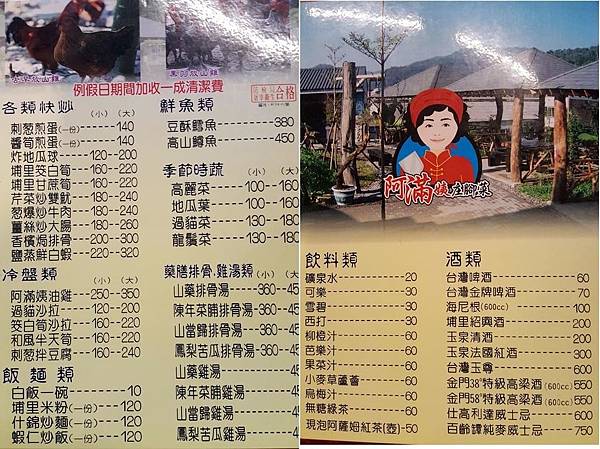 例假日期間加收一成清潔費
合格
各類快炒 (小) (大)
刺葱煎蛋(一份)------140
醬筍煎蛋(一份)------140
炸地瓜球------120--200
埔里茭白筍--160--220
埔里甘蔗筍--160--220
芹菜炒雙魷--180--240
葱爆炒牛肉--180--240
薑絲炒大腸--180--260
香檳焗排骨--200--300
鹽蒸鮮白蝦--220--320
冷盤類 (小) (大)
阿滿姨油雞--250--350
過貓沙拉----120--200
茭白筍沙拉--160--220
和風半天筍--160--220
刺葱拌豆腐--160--240
飯麵類
白飯一碗----------10
埔里米粉(一份)---120
什錦炒麵(一份)---120
蝦仁炒飯(一份)---120
鮮魚類
豆酥鱈魚--------380
高山鱒魚--------450
季節時蔬 (小) (大)
高麗菜----100--160
地瓜葉----100--160
過貓菜----130--180
龍鬚菜----130--180
藥膳排骨.雞湯類 (小) (大)
山藥排骨湯----360--45
陳年菜脯排骨湯-360--45
山當歸排骨湯--360--45
鳳梨苦瓜排骨湯-360--45
山藥雞湯
陳年菜脯雞湯
山當歸雞湯
鳳梨苦瓜雞湯
阿滿姨庄腳菜
飲料類
礦泉水----------20
可樂------------30
雪碧------------30
西打------------30
柳橙汁----------60
芭樂汁----------60
果菜汁----------60
小麥草蘆薈------60
烏梅汁----------60
無糖綠茶--------60
現泡阿薩姆紅茶(壺)-50
酒類
台灣啤酒----------60
台灣金牌啤酒------70
海尼根(600cc)----100
埔里紹興酒-------200
玉泉清酒---------200
玉泉法國紅酒-----300
台灣玉尊---------600
金門38°特級高梁酒(600cc)550
金門58°特級高梁酒(600cc)550
仕高利達威士忌---600
百齡譚純麥威士忌-----750